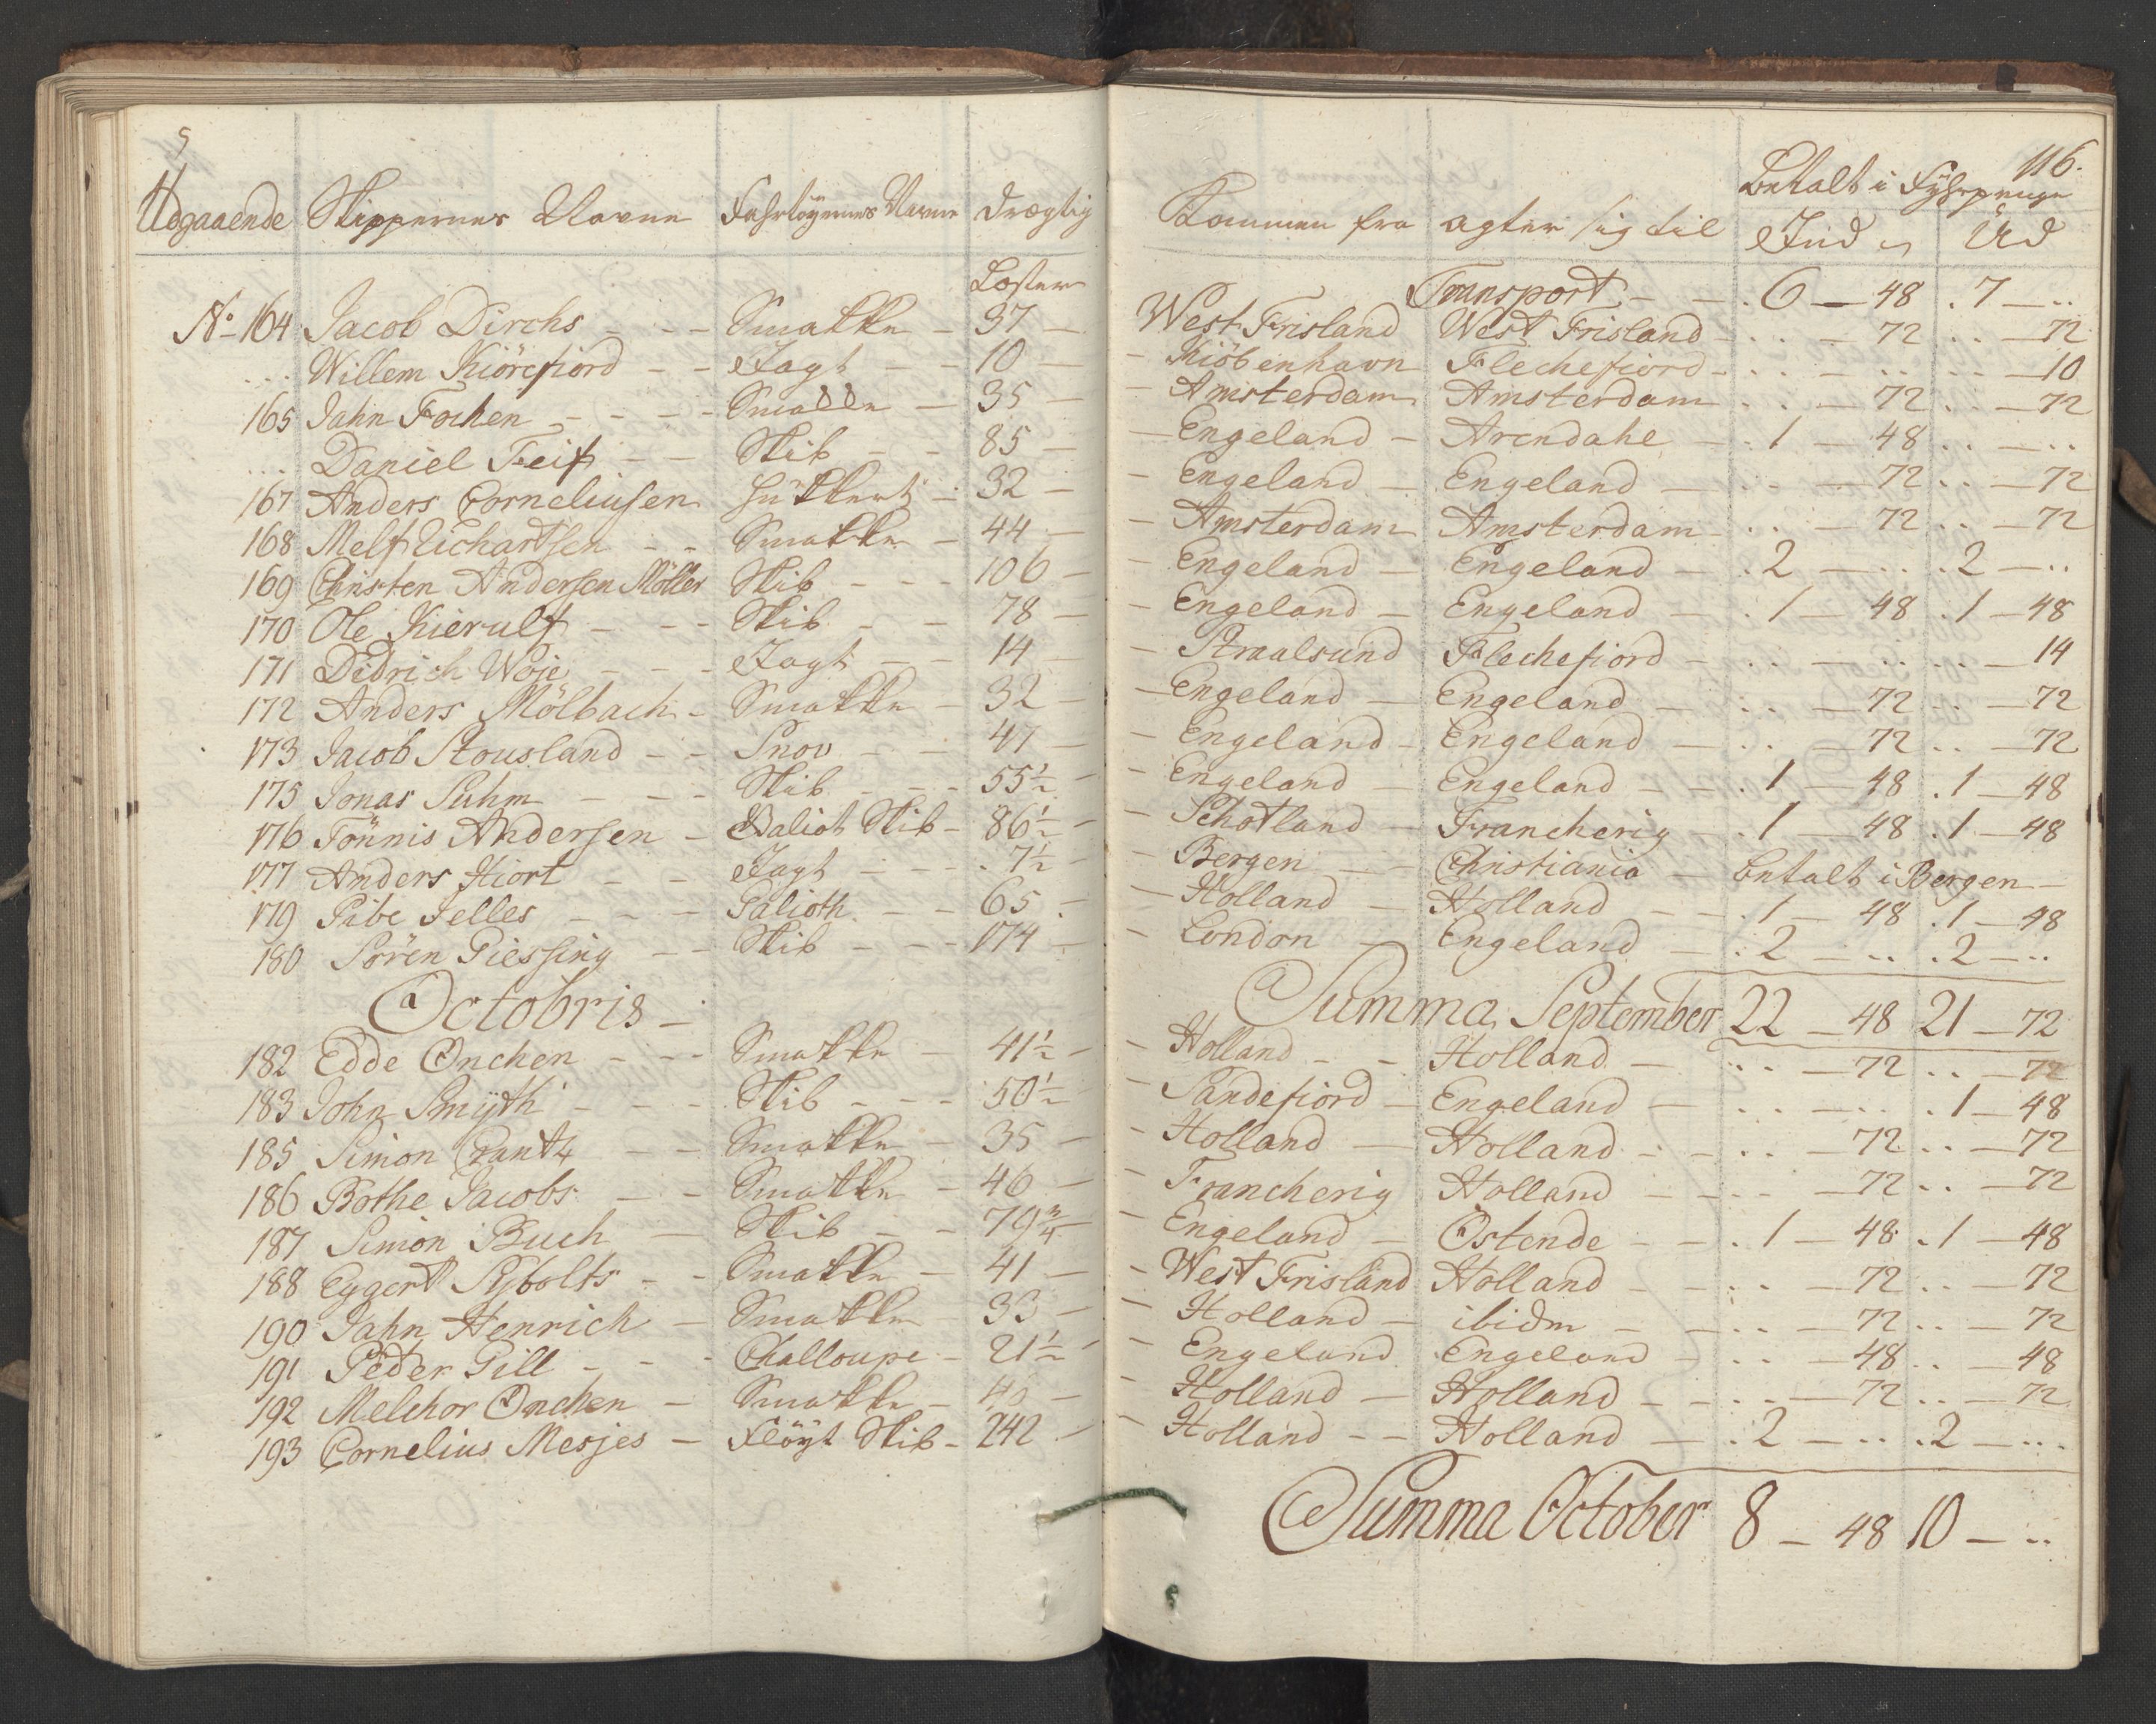 116.
Udgaaende Skippernes Navne Fahrtöyernes Navne Drægtig Kommen fra agter sig til Betalt i Fyhrpenge
Ind Ud
Læster
Transport - - . 6 — 48 . 7 — ..
No 164 Jacob Dirchs - - - Smakke - 37 — West Frisland West Frisland - .. — 72 .. — 72
... Willem Kiörefiord - - Jagt - - 10 — Kiöbenhavn Flechefiord - .. — .. .. — 10
165 Jahn Fochen - - - - Smakke - 35 — Amsterdam Amsterdam .. — 72 .. — 72
... Daniel Feif - - Skib - - 85 — Engeland - Arendahl - . 1 — 48 .. — ..
167 Anders Corneliusen Hukkert - 32 — Engeland Engeland - .. — 72 .. — 72
168 Melf Richartsen - - Smakke - 44 — Amsterdam Amsterdam - .. — 72 .. — 72
169 Christen Andersen Möller Skib - - - 106 — Engeland - Engeland - . 2 — .. . 2 — ..
170 Ole Kierulf - - - Skib - - 78 — Engeland - Engeland - . 1 — 48 . 1 — 48
171 Didrich Woje - - - Jagt - - 14 — Straalsund Flechefiord - .. — .. .. — 14
172 Anders Mölbach - Smakke - 32 — Engeland - Engeland - .. — 72 .. — 72
173 Jacob Stousland - - Snov - - 47 — Engeland - Engeland - .. — 72 .. — 72
175 Jonas Suhm - - - Skib - - - 55½ — Engeland - Engeland - - . 1 — 48 . 1 — 48
176 Tönnis Andersen - Galiot Skib - 86½ — Schotland - Francherig - . 1 — 48 . 1 — 48
177 Anders Hiort - - Jagt - - - . 7½ — Bergen - - Christiania - betalt i Bergen -
179 Sibe Jelles - - - Galioth - - 65 — Holland - Holland - - . 1 — 48 . 1 — 48
180 Sören Giessing - - Skib - - - 174 — London - Engeland - . 2 — .. . 2 — ..
Summa September 22 — 48 21 — 72
Octobris -
182 Edde Onchen - - - Smakke - 41½ — Holland - - Holland - .. — 72 .. — 72
183 John Smÿth - - - Skib - - - 50½ Sandefiord - Engeland - .. — .. . 1 — 48
185 Simon Crantz - - Smakke - 35 — Holland - Holland - - .. — 72 .. — 72
186 Bothe Jacobs - - Smakke - 46 — Francherig Holland - - .. — 72 .. — 72
187 Simon Buch - Skib - - 79¾ — Engeland - Ostende - - . 1 — 48 . 1 — 48
188 Eggert Sybolts - - Smakke - 41 — West Frisland Holland - - .. — 72 .. — 72
190 Jahn Henrich - Smakke - 33 — Holland - ibidm - - .. — 72 .. — 72
191 Peder Gill - - - Challoupe - 21½ — Engeland Engeland - .. — 48 .. — 48
192 Melchor Onchen - Smakke - 40 — Holland - Holland - - .. — 72 .. — 72
193 Cornelius Mesjes - Flöyt Skib - 242 — Holland - - Holland - . 2 — .. . 2 — ..
Summa October 8 — 48 10 — ..